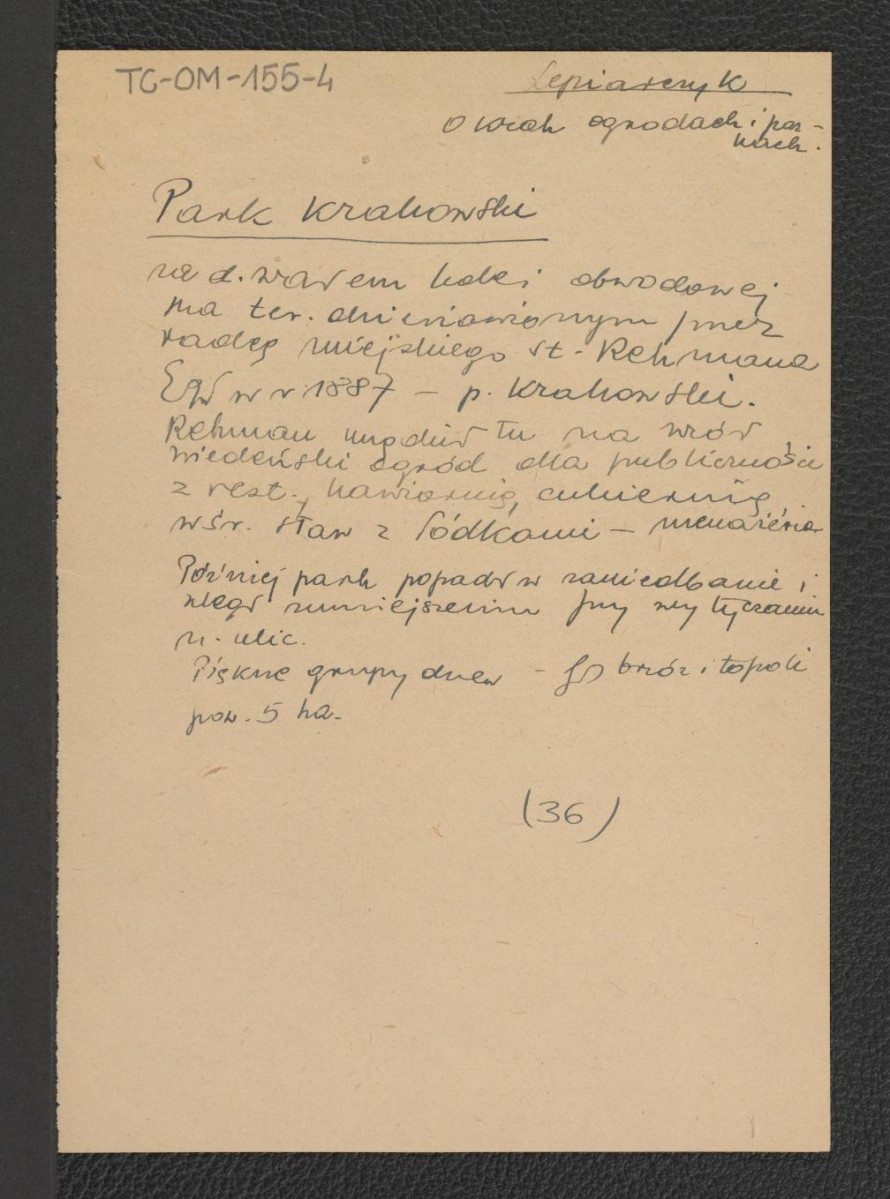 TC-OM-155-4
Lepiarczyk
O krak ogrodach i par-
kach.
Park Krakowski
za d. wałem kolei obwodowej
na ter. dzierżawionym przez
radcę miejskiego St. Rehmana
w r 1887 – p. Krakowski.
Rehman urządził tu na wzór
wiedeński ogród dla publiczności
z rest., kawiarnią, cukiernią
wśr. staw z łódkami – menażeria
Później park popadł w zaniedbanie i
uległ zmniejszeniu przy wytyczaniu
n. ulic.
Piękne grupy drzew – brzóz i topoli
pow. 5 ha.
(36)